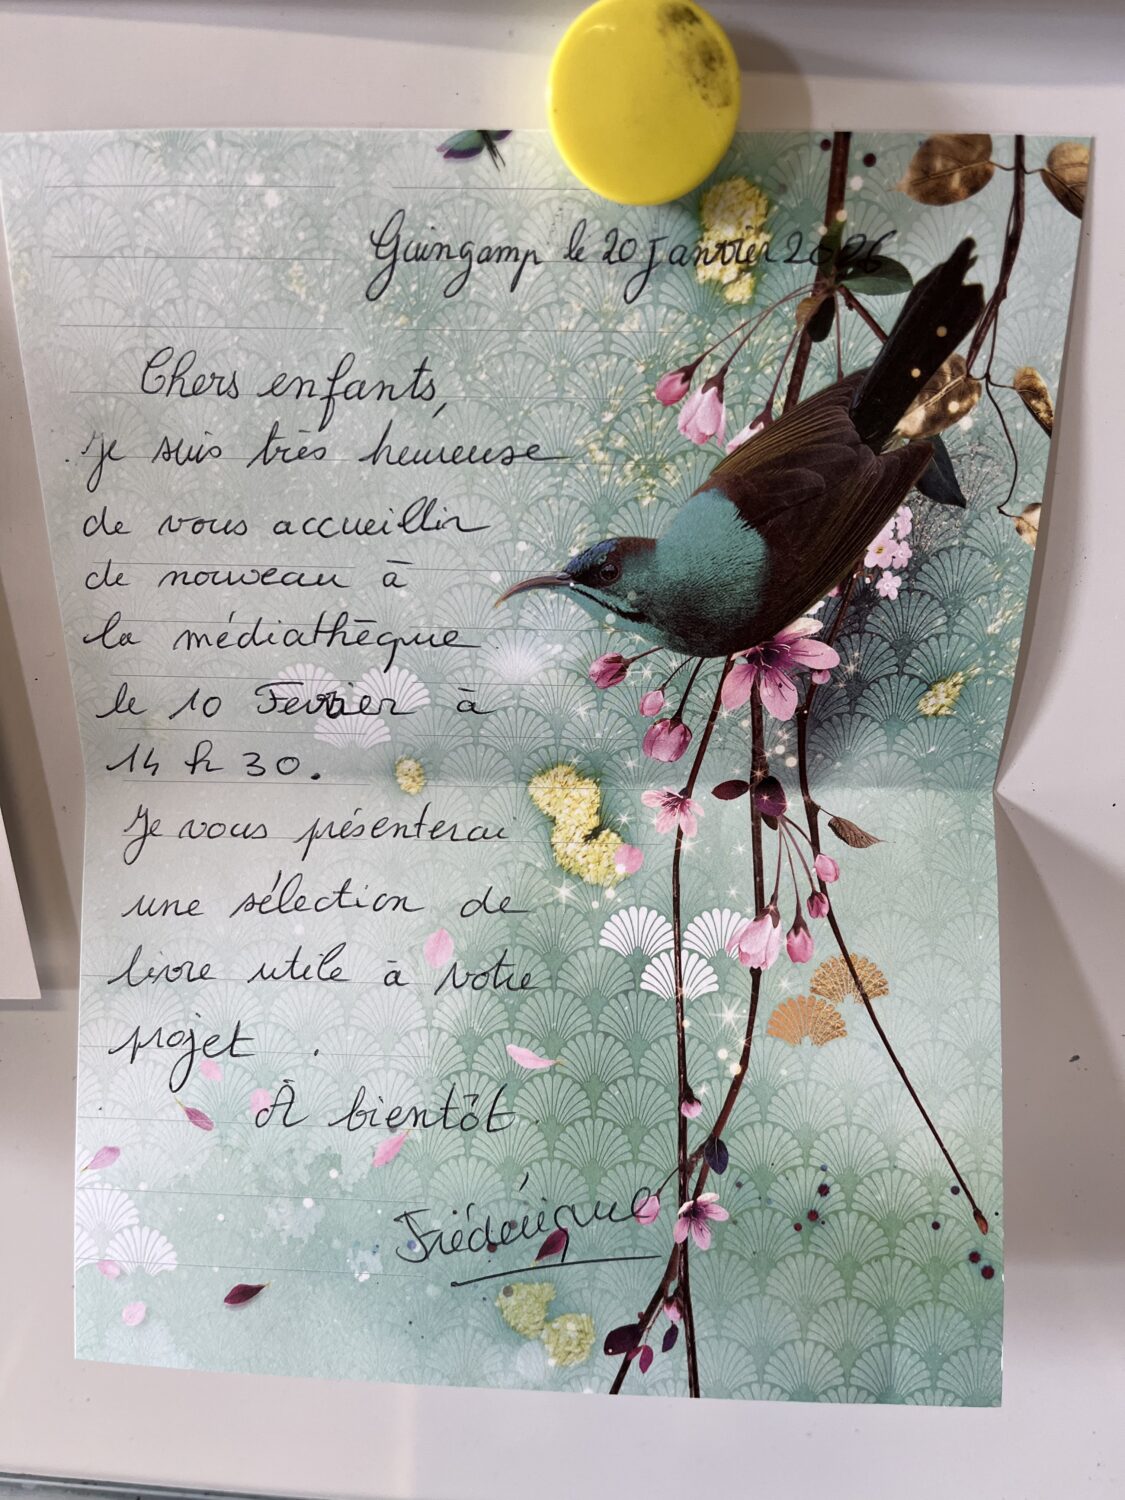 Guingamp le 20 Janvier 2026
Chers enfants,
Je suis très heureuse
de vous accueillir
de nouveau à
la médiathèque
le 10 Fevrier à
14 h 30.
Je vous présenterai
une sélection de
livre utile à votre
projet .
À bientôt
Frédérique